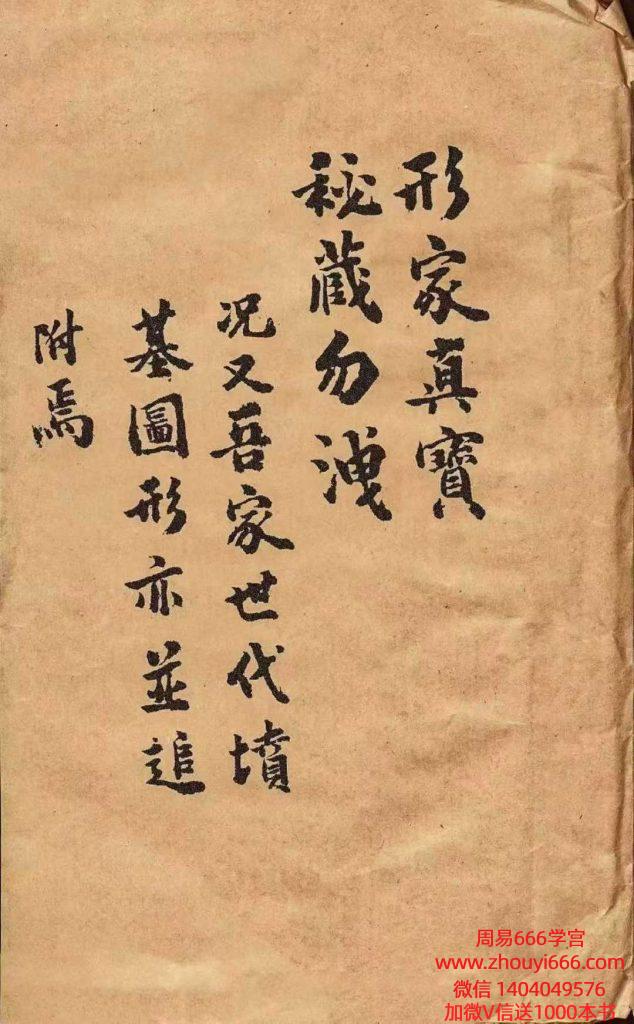 形家真寶
秘蔵勿洩
况又吾家世代墳
墓圖形亦並追
附焉
周易666学宫
www.zhouyi666.com
微信 1404049576
加微V信送1000本书